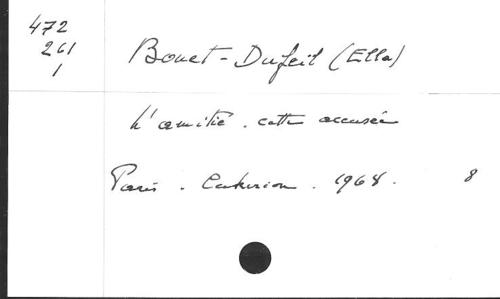 472
261
1
Bouet-Dufeil (Ella)
L'amitié. cette accusée
Paris. Centurion. 1968. 8